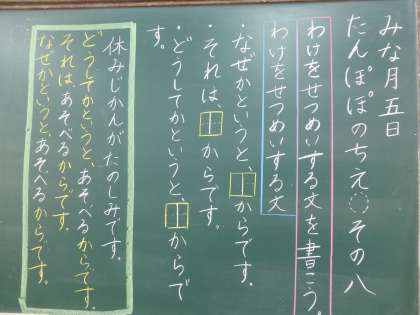 みな月五日
たんぽぽのちえ その八
わけをせつめいする文を書こう。
わけをせつめいする文
・なぜかというと、
からです。
・それは、
からです。
・どうしてかというと、
からで
す。
休みじかんがたのしみです。
どうしてかというと、あそべるからです。
それは、あそべるからです。
なぜかというと、あそべるからです。